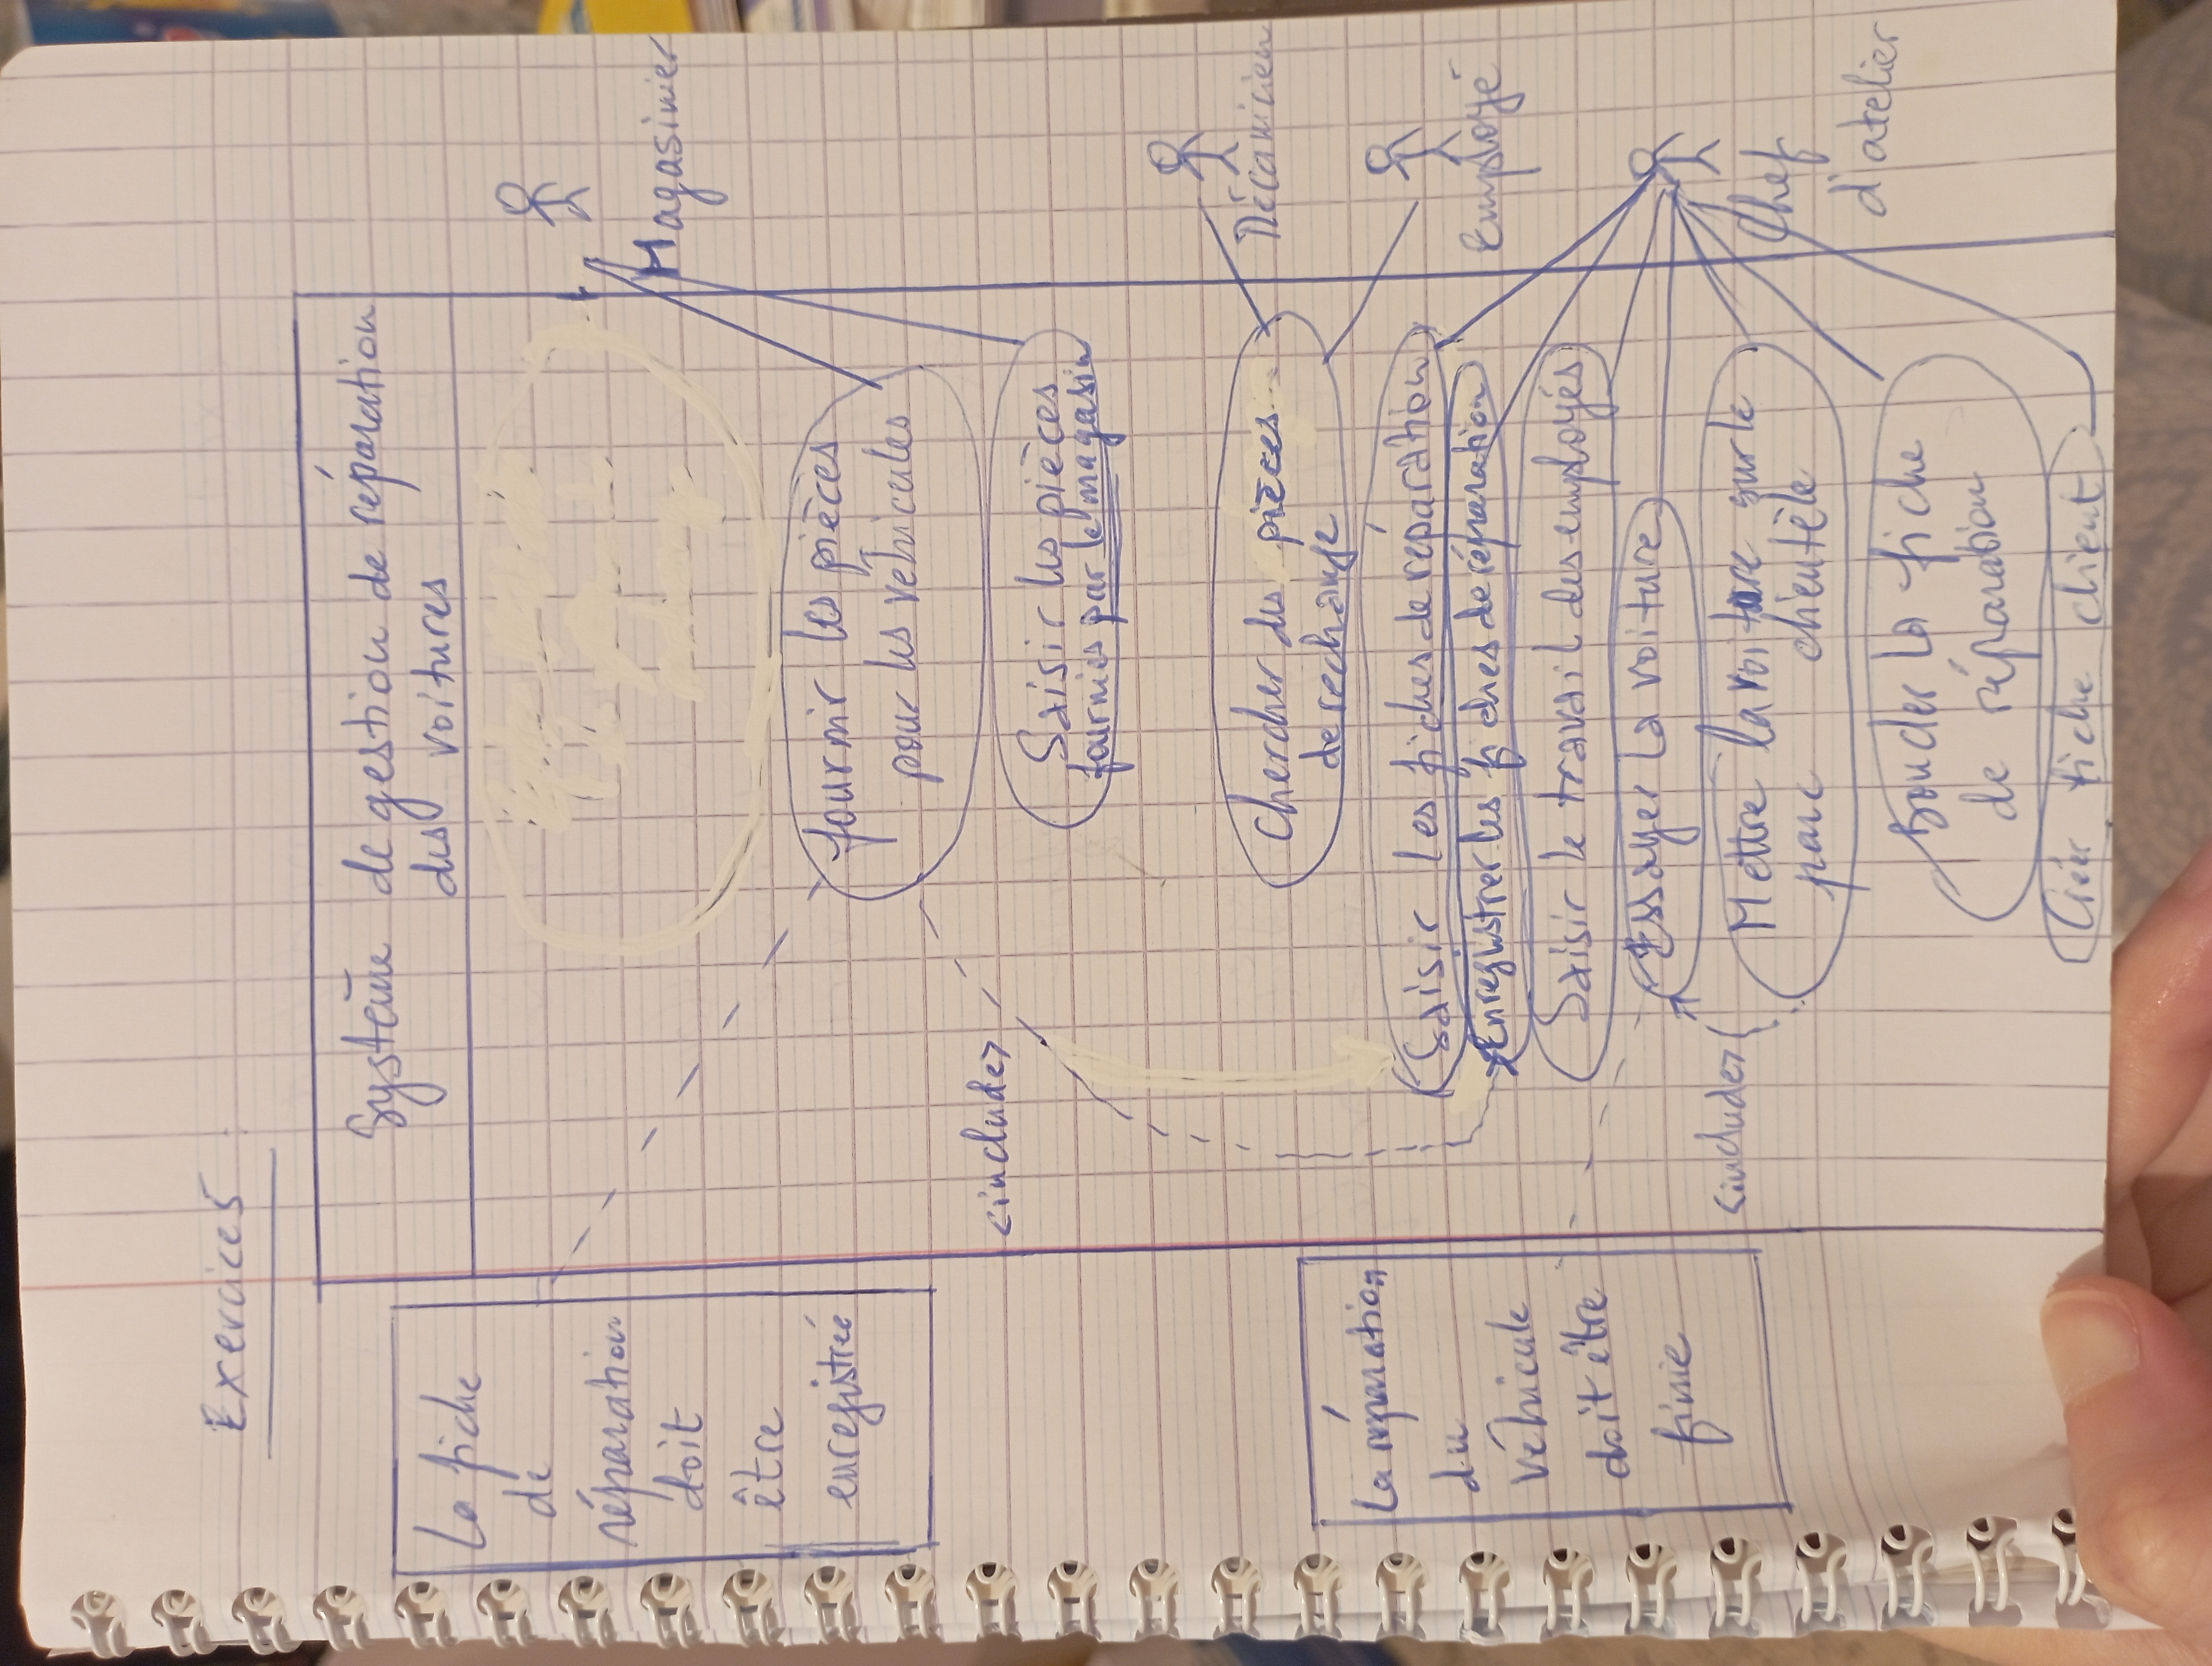 Exercice 5
Système de gestion de réparation
des voitures
La fiche
de
réparation
doit
être
enregistrée
Magasinier
fournir les pièces
pour les véhicules
<include>
Saisir les pièces
fournies par le magasin
Mécanicien
Chercher des pièces
de rechange
La réparation
du
véhicule
doit être
finie
Saisir les fiches de réparation
Enregistrer les fiches de réparation
Employé
Saisir le travail des employés
Essayer la voiture
<include>
Mettre la voiture sur le
parc clientèle
Chef
d'atelier
Boucler la fiche
de réparation
Créer fiche client